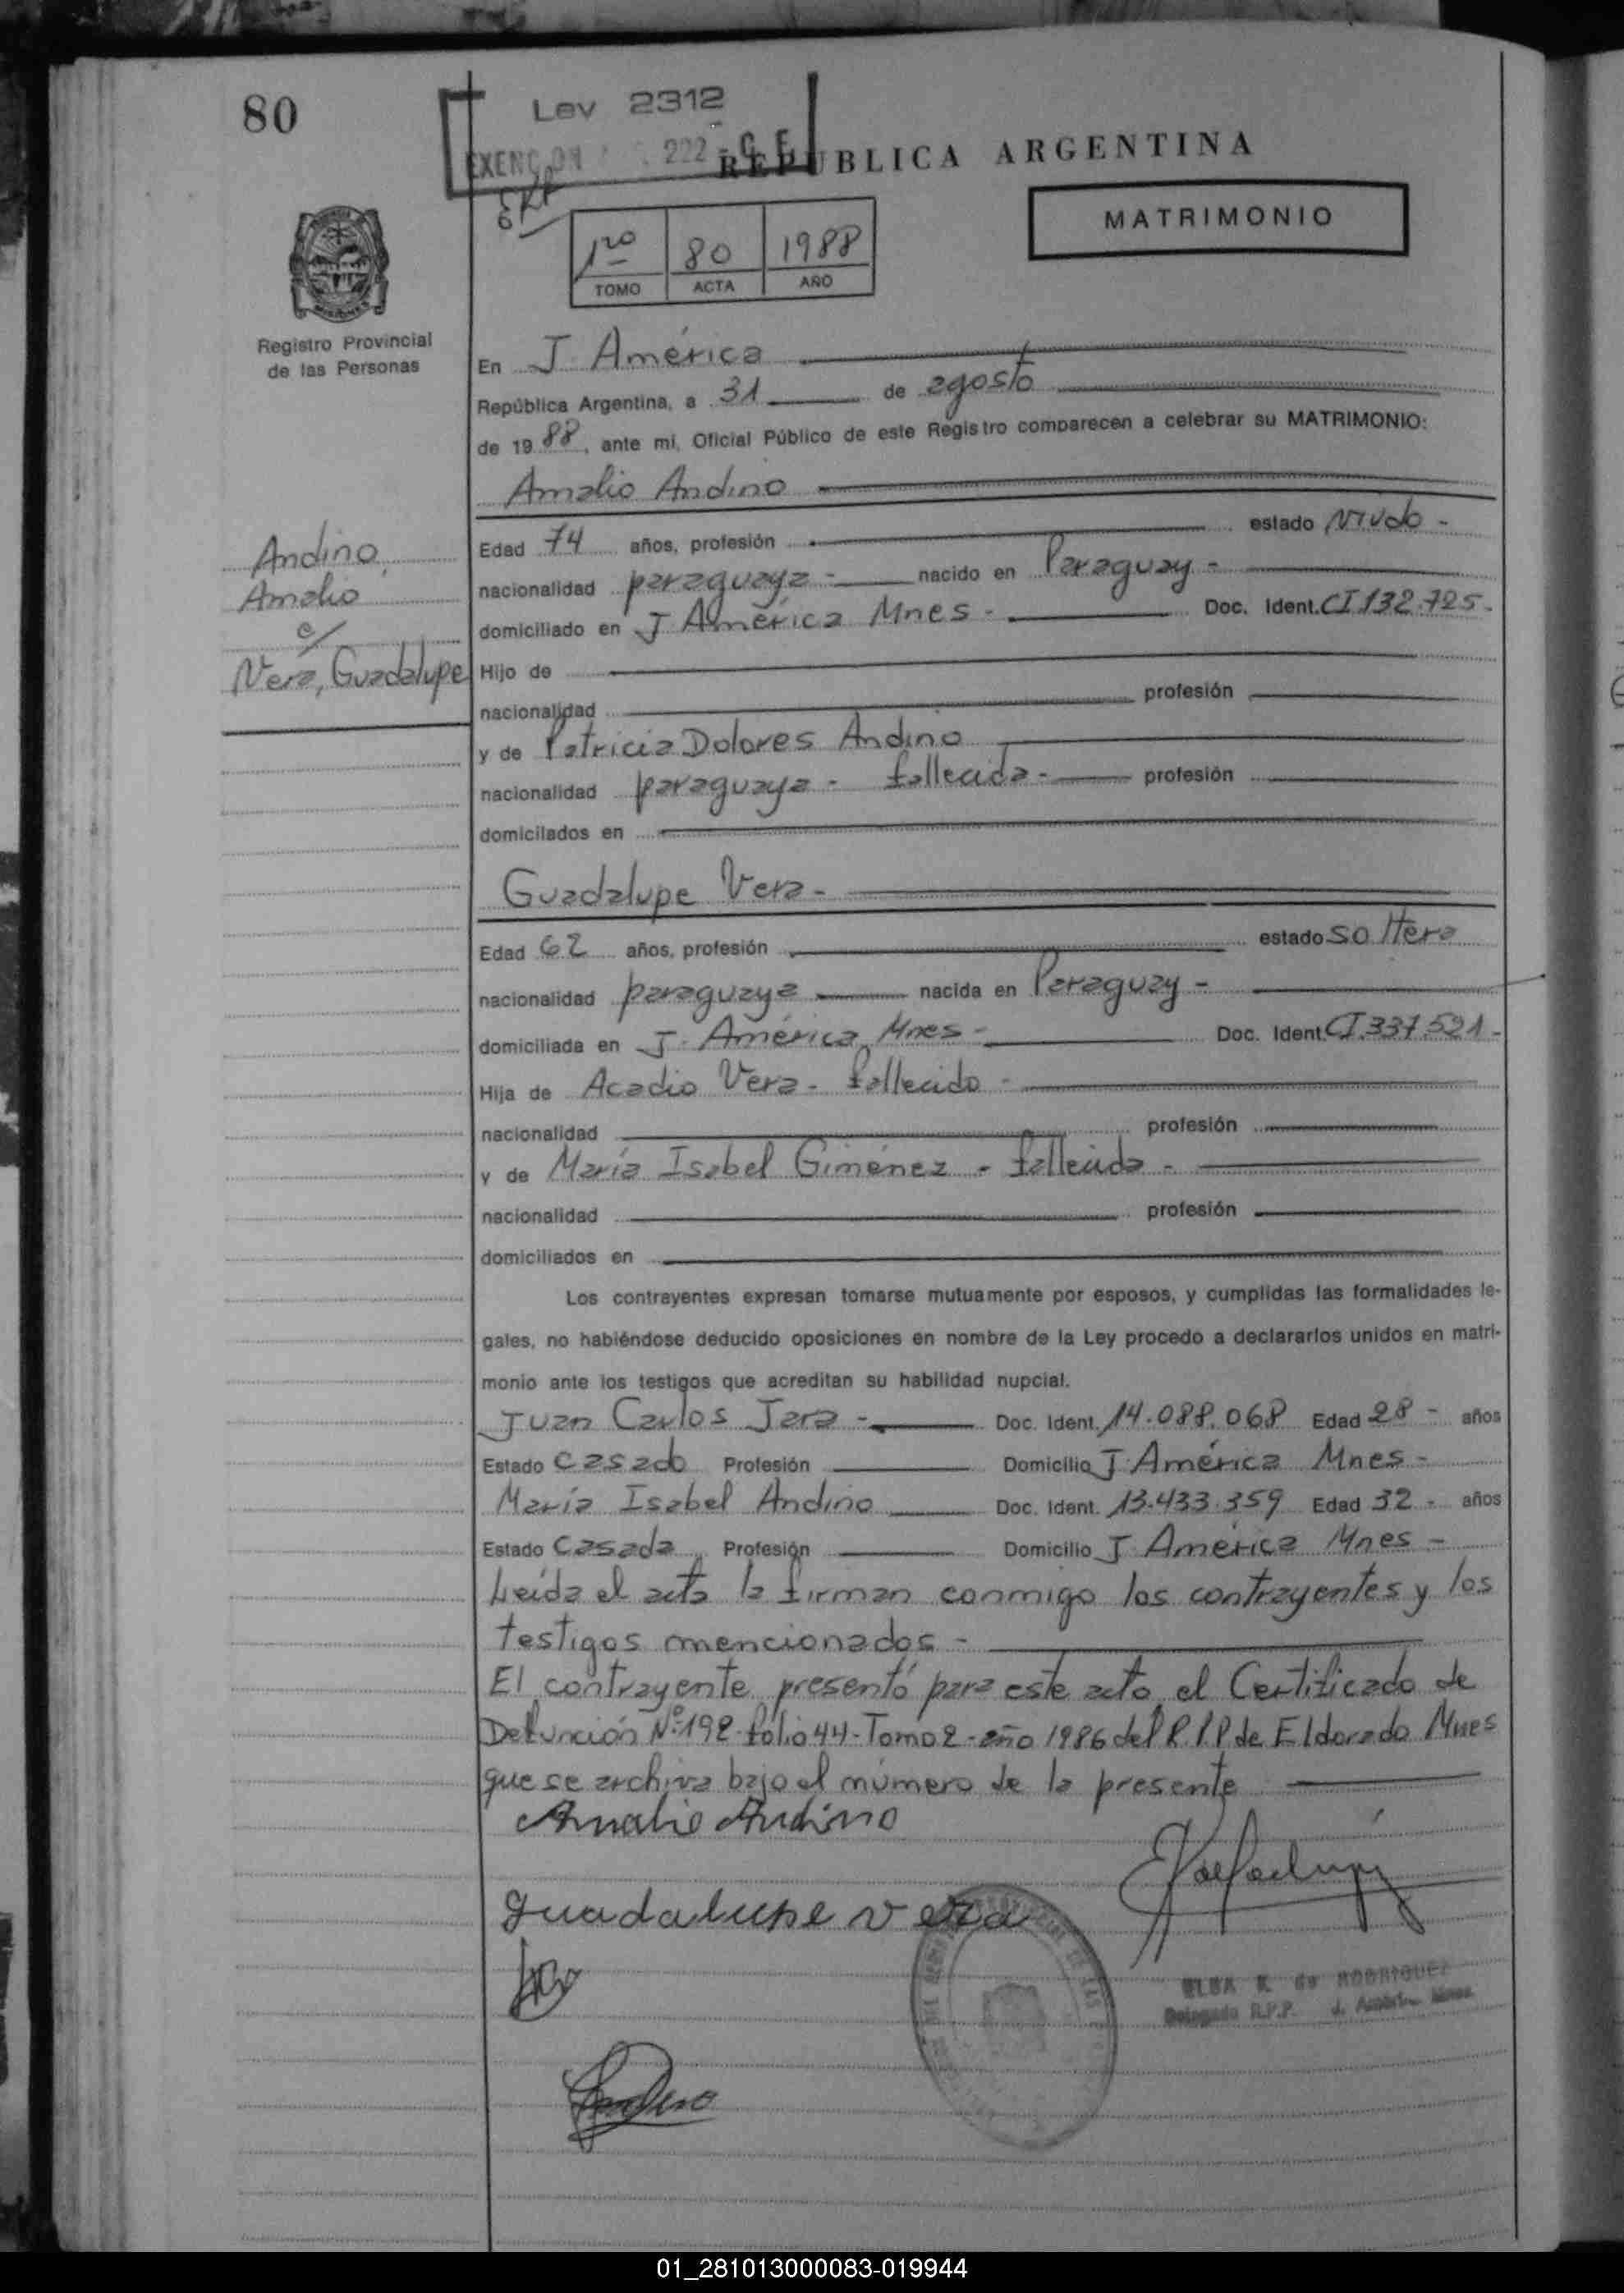 80
Ley 2312
EXENCION 222 - C. F.
REPUBLICA ARGENTINA
MATRIMONIO
1ro 80 1988
TOMO ACTA AÑO
Registro Provincial
de las Personas
En J. América
República Argentina, a 31 de agosto
de 1988, ante mi, Oficial Público de este Registro comparecen a celebrar su MATRIMONIO:
Amalio Andino
Andino,
Amalio
c/
Vera, Guadalupe
Edad 74 años, profesión estado viudo -
nacionalidad paraguaya - nacido en Paraguay -
domiciliado en J. América Mnes - Doc. Ident. CI 132.725.
Hijo de
nacionalidad profesión
y de Patricia Dolores Andino
nacionalidad paraguaya - fallecida - profesión
domicilados en
Guadalupe Vera -
Edad 62 años, profesión estado soltera
nacionalidad paraguaya nacida en Paraguay -
domiciliada en J. América Mnes - Doc. Ident. CI.337.521 -
Hija de Acadio Vera - fallecido -
nacionalidad profesión
y de María Isabel Giménez - fallecida -
nacionalidad profesión
domiciliados en
Los contrayentes expresan tomarse mutuamente por esposos, y cumplidas las formalidades le-
gales, no habiéndose deducido oposiciones en nombre de la Ley procedo a declararlos unidos en matri-
monio ante los testigos que acreditan su habilidad nupcial.
Juan Carlos Jara - Doc. Ident. 14.088.068 Edad 28 - años
Estado casado Profesión Domicilio J. América Mnes -
María Isabel Andino Doc. Ident. 13.433.359 Edad 32 - años
Estado casada Profesión Domicilio J. América Mnes -
Leída el acta la firman conmigo los contrayentes y los
testigos mencionados -
El contrayente presentó para este acto el Certificado de
Defunción Nº 192 folio 44 - Tomo 2 - año 1986 del R.P.P de Eldorado Mnes
que se archiva bajo el número de la presente
Amalio Andino
Guadalupe Vera
ELBA K. de RODRIGUEZ
Delegada R.P.P. J. América Mnes
Andino
01_281013000083-019944